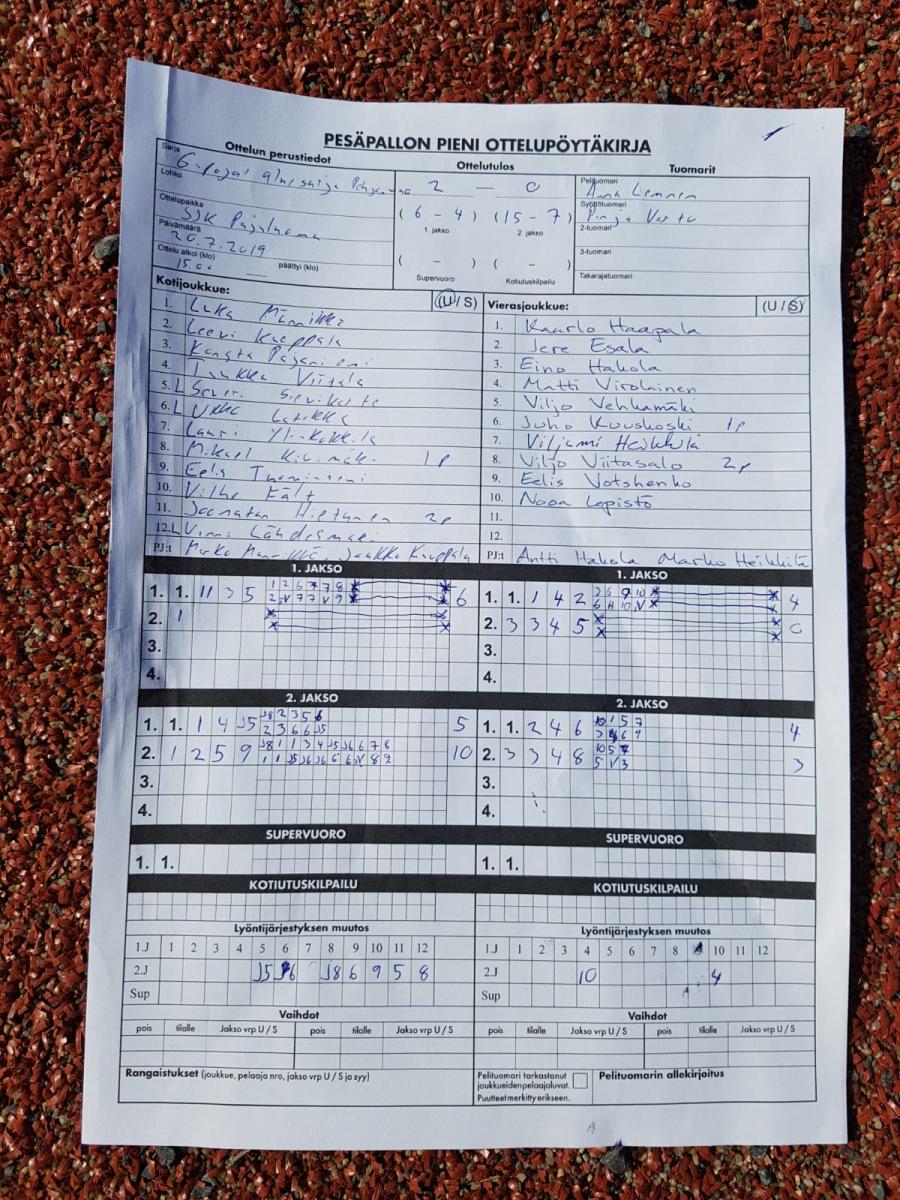 PESÄPALLON PIENI OTTELUPÖYTÄKIRJA
Ottelun perustiedot Ottelutulos Tuomarit
Sarja G-pojat
Lohko
Ottelupaikka SJK
Päivämäärä 20.7.2019
Ottelu alkoi (klo) 15.00 päättyi (klo)
2 — 0
( 6 - 4 ) ( 15 - 7 )
1. jakso 2. jakso
( - ) ( - )
Supervuoro Kotiutuskilpailu
Pelituomari Anna
Syöttötuomari Pinja
2-tuomari
3-tuomari
Takarajatuomari
Kotijoukkue: (U / S)
1. Luka Männikkö
2. Leevi Kauppala
3. Kangta
4. Tuukka Viitala
5. L
6. L Ukko
7. Lauri
8. Mikael 1p
9. Eelis Tuominiemi
10. Vilho Fält
11. Joonatan Hietanen 2p
12. L Lähdesmäki
PJ:t Jaakko Kauppala
Vierasjoukkue: (U / S)
1. Kaarlo Haapala
2. Jere Esala
3. Eino Hakola
4. Matti Virolainen
5. Viljo Vehkamäki
6. Juho Kuuskoski 1p
7. Viljami Heikkilä
8. Viljo Viitasalo 2p
9. Eelis Votshenko
10. Nooa Lepistö
11.
12.
PJ:t Antti Hakola Marko Heikkilä
1. JAKSO
1. 1. 11 3 5 1 2 6 7 7 8 6
2 V 7 7 V 9
2. 1
3.
4.
1. JAKSO
1. 1. 1 4 2 2 6 9 10 4
6 H 10 V
2. 3 3 4 5 0
3.
4.
2. JAKSO
1. 1. 1 4 J5 J8 2 3 5 6 5
2 3 6 6 J5
2. 1 2 5 9 J8 1 1 3 4 J5 J6 6 7 8 10
1 1 J5 J6 J6 6 6 V 8 9
3.
4.
2. JAKSO
1. 1. 2 4 6 10 1 5 7 4
2. 3 3 4 8 10 5 7 3
5 V 3
3.
4.
SUPERVUORO
1. 1.
SUPERVUORO
1. 1.
KOTIUTUSKILPAILU
KOTIUTUSKILPAILU
Lyöntijärjestyksen muutos
1.J 1 2 3 4 5 6 7 8 9 10 11 12
2.J J5 J6 J8 6 9 5 8
Sup
Lyöntijärjestyksen muutos
1.J 1 2 3 4 5 6 7 8 10 11 12
2.J 10 4
Sup
Vaihdot
pois tilalle Jakso vrp U / S pois tilalle Jakso vrp U / S
Vaihdot
pois tilalle Jakso vrp U / S pois tilalle Jakso vrp U / S
Rangaistukset (joukkue, pelaaja nro, jakso vrp U / S ja syy)
Pelituomari tarkastanut
joukkueiden pelaajaluvat.
Puutteet merkitty erikseen.
Pelituomarin allekirjoitus